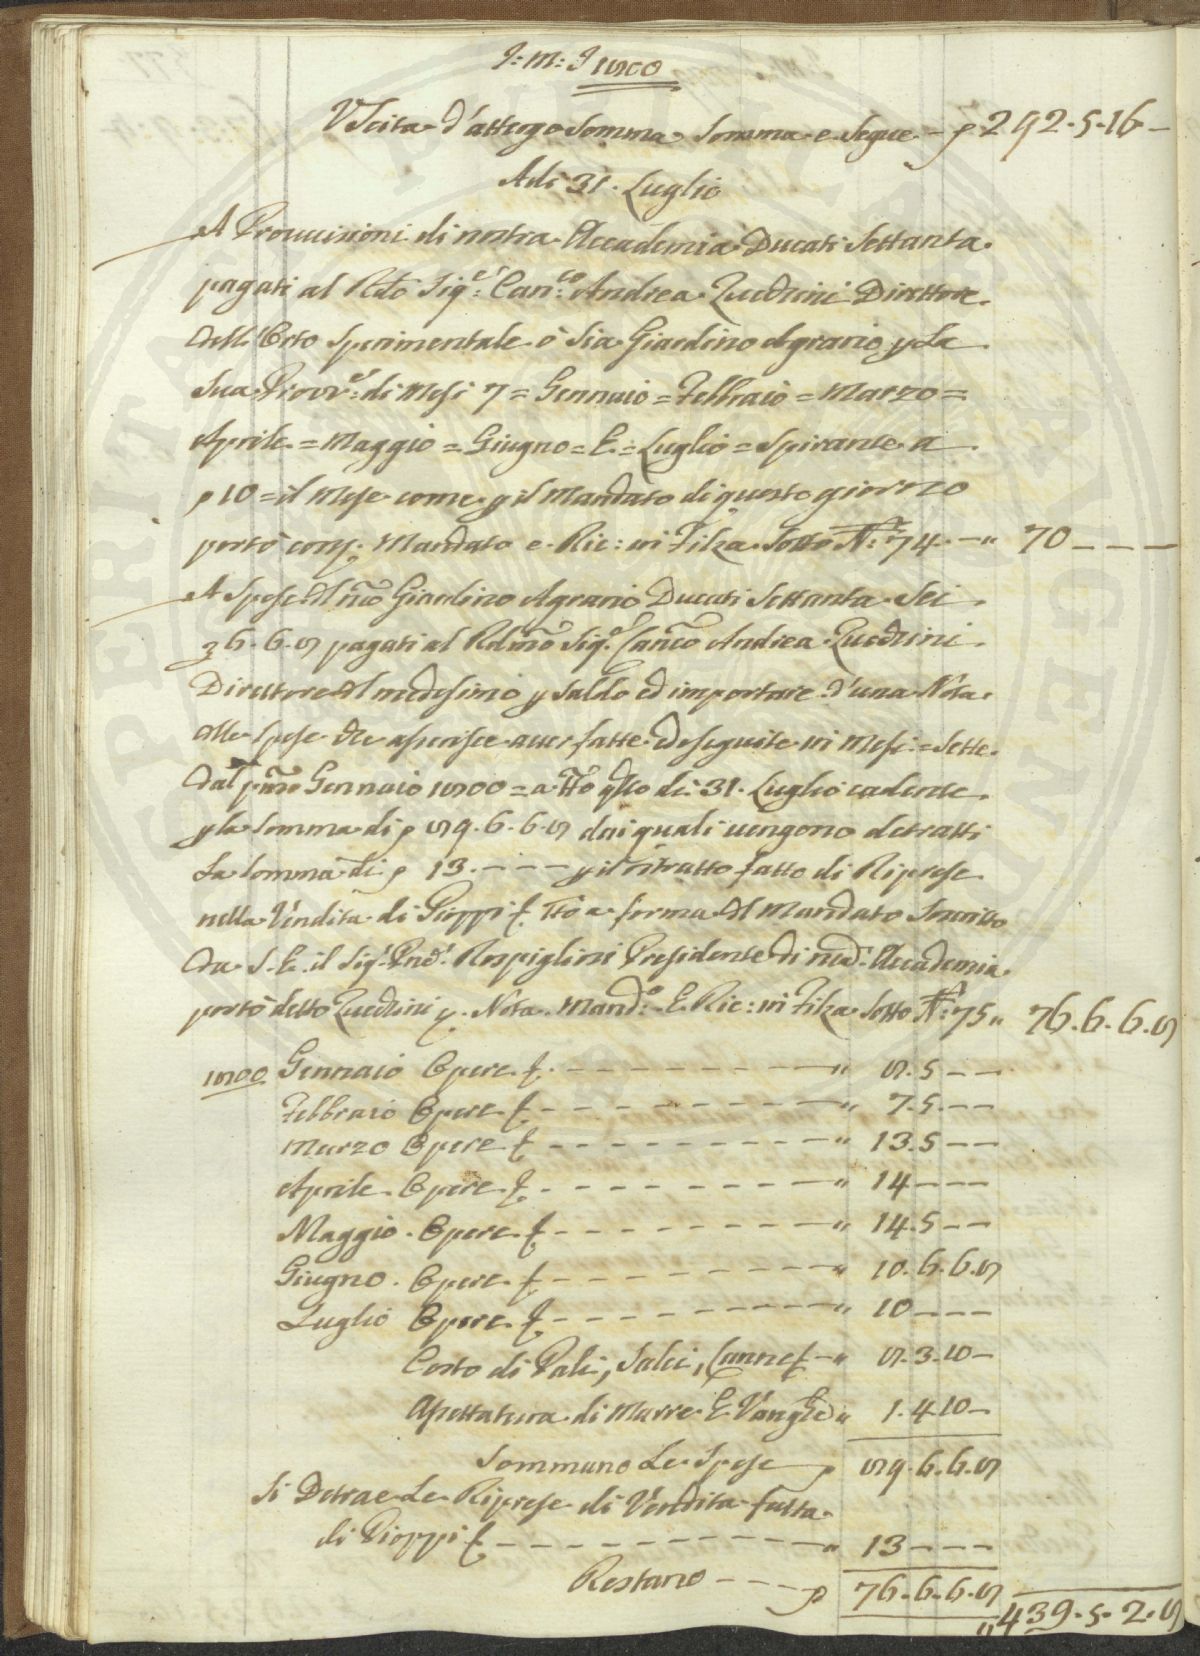 J: M: J 1800
Uscita d'attergo Somma Somma e Segue - p 292.5.16 -
Adi 31. Luglio
A Provvisioni di nostra Accademia Ducati Settanta
pagati al Rdo Sigr: Canco: Andrea Zucchini Direttore
dell'Orto Sperimentale ò sia Giardino Agrario p La
Sua Provve: di Mesi 7 = Gennaio = Febbraio = Marzo =
Aprile = Maggio = Giugno = E = Luglio = Spirante a
p 10 = il Mese come p il Mandato di questo giorno
portò consj: Mandato e Ric: in Filza Sotto N: 74 - " 70 - - -
A Spese del nro Giardino Agrario Ducati Settanta Sei
36.6.8 pagati al Rdmo Sigr Canco Andrea Zucchini
Direttore del medesimo p Saldo ed importare d'una Nota
delle Spese che asserisce aver fatte ed eseguite in Mesi = Sette
dal pmo Gennaio 1800 = a tto qsto di 31. Luglio cadente
p la Somma di p 89.6.6.8 dai quali vengono detratti
La Somma di p 13. - - - p il ritratto fatto di Riprese
nella Vendita di Pioppi f. tto a forma del Mandato Scritto
da S. E. il Sigr. Pnpe. Rospigliosi Presidente di md. Accademia
portò detto Zucchini p. Nota Mando: E Ric: in Filza Sotto N: 75 " 76.6.6.8
1800 Gennaio Opere f. - - - " 8.5 - -
Febbraio Opere f. - - - " 7.5 - -
Marzo Opere f. - - - " 13.5 - -
Aprile Opere f. - - - " 14 - - -
Maggio Opere f. - - - " 14.5 - -
Giugno Opere f. - - - " 10.6.6.8
Luglio Opere f. - - - " 10 - - -
Costo di Pali, Salci, Canne f - " 8.3.10 -
Assettatura di Marre E Vanghe " 1.4.10 -
Sommano Le Spese p 89.6.6.8
Si Detrae Le Riprese di Vendita fatta
di Pioppi f. - - - " 13 - - -
Restano - - - p 76.6.6.8
" 439.5.2.8